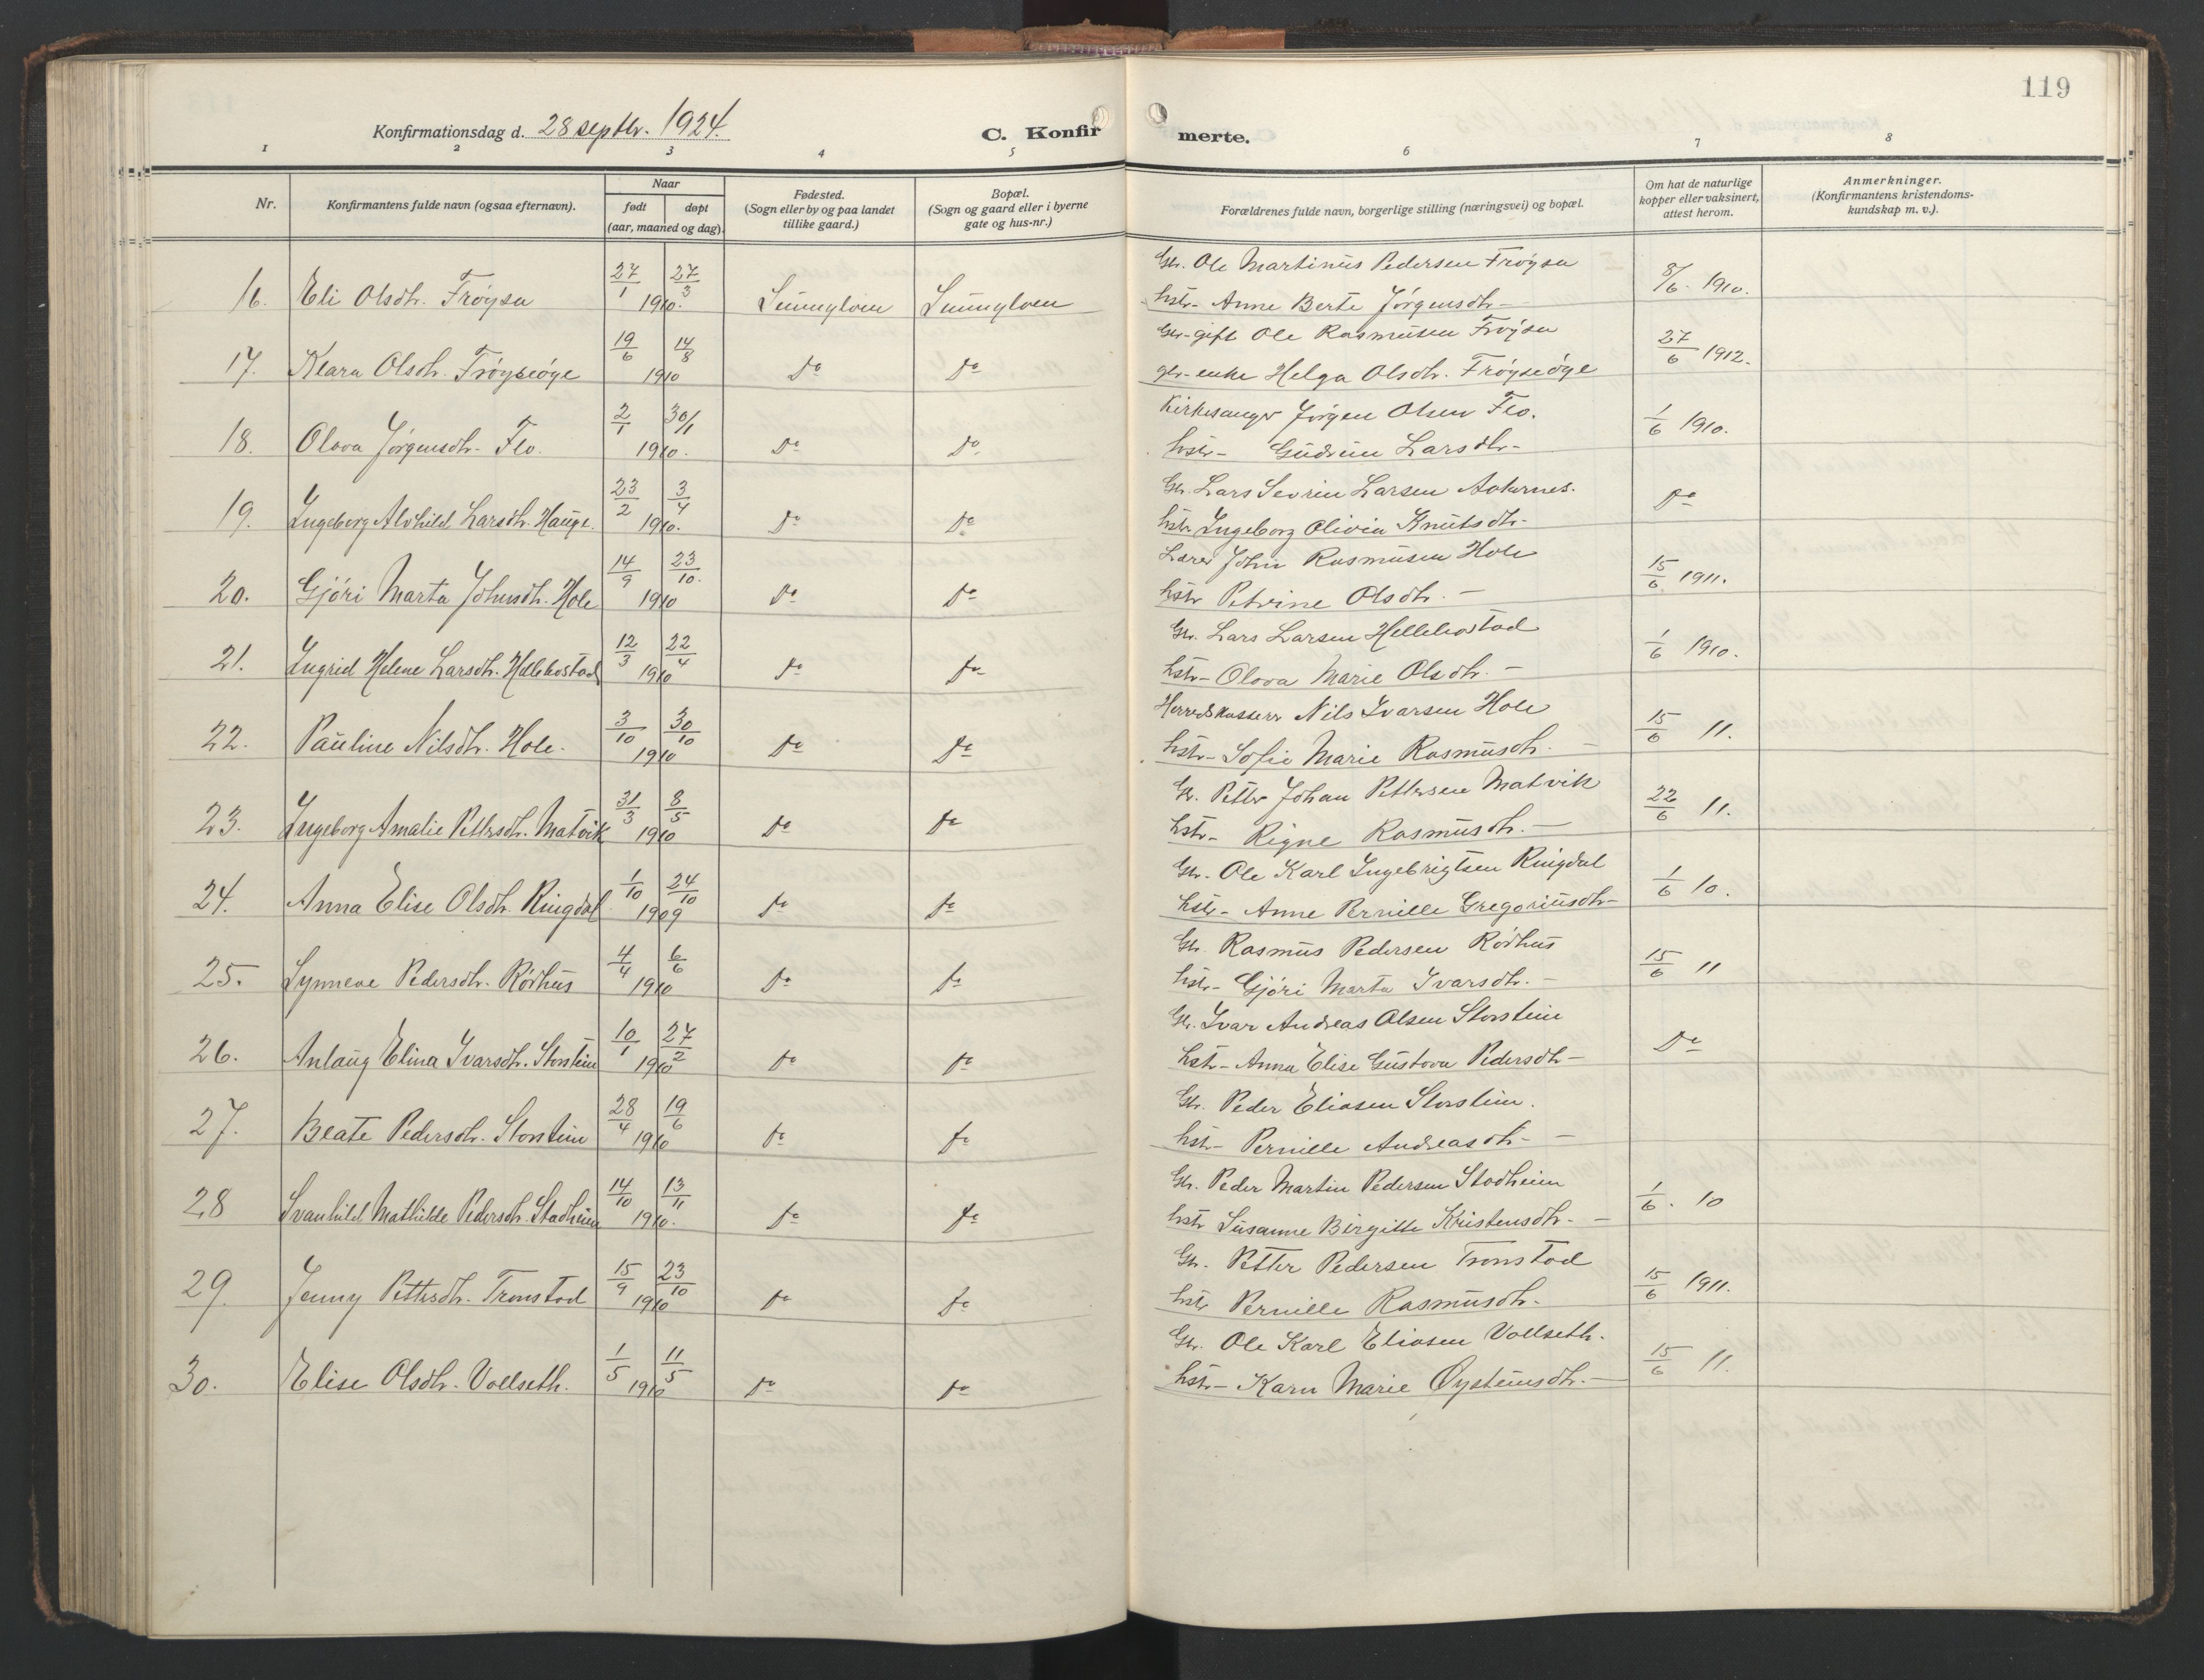 119
Konfirmationsdag d. 28 septbr. 1924.
C. Konfirmerte.
1 2 3 4 5 6 7 8
Nr.
Konfirmantens fulde navn (ogsaa efternavn).
Naar
født døpt
(aar, maaned og dag).
Fødested.
(Sogn eller by og paa landet
tillike gaard.)
Bopæl.
(Sogn og gaard eller i byerne
gate og hus-nr.)
Forældrenes fulde navn, borgerlige stilling (næringsvei) og bopæl.
Om hat de naturlige
kopper eller vaksinert,
attest herom.
Anmerkninger.
(Konfirmantens kristendoms-
kundskap m. v.).
Gbr. Ole Martinus Pedersen Frøysa
16. Eli Olsdtr. Frøysa 27/1 27/3 1910. Sunnylven Sunnylven 8/6. 1910.
hstr- Anne Berte Jørgensdtr-
Gbr-gift Ole Rasmusen Frøysa
17. Klara Olsdtr. Frøyseøye 19/6 14/8 1910 Do Do 27/6 1912.
gbr-enke Helga Olsdtr. Frøyseøye
Kirkesanger Jørgen Olsen Flo.
18. Olova Jørgensdtr- Flo. 2/1 30/1 1910. Do Do 1/6 1910.
hstr- Gudrun Larsdtr-
Gbr. Lars Sevrin Larsen Aakernes.
19. Ingeborg Alvhild Larsdtr. Hauge. 23/2 3/4 1910. Do Do Do
hstr Ingeborg Olivia Knutsdtr-
Lærer John Rasmusen Hole
20. Gjøri Marta Johnsdtr. Hole 14/9 23/10. 1910 Do Do 15/6 1911.
hstr Petrine Olsdtr. -
Gbr. Lars Larsen Hellebostad
21. Ingrid Helene Larsdtr. Hellebostad 12/3 22/4 1910 Do Do 1/6 1910.
hstr- Olova Marie Olsdtr. -
Herredskasserer Nils Ivarsen Hole
22. Pauline Nilsdtr. Hole. 3/10 30/10 1910 Do Do 15/6 11.
hstr- Sofie Marie Rasmusdtr. -
Gbr. Petter Johan Pettersen Matvik
23. Ingeborg Amalie Pettersdtr. Matvik 31/3 8/5 1910 Do Do 22/6 11.
hstr- Rigne Rasmusdtr. -
Gbr. Ole Karl Ingebrigtsen Ringdal
24. Anna Elise Olsdtr. Ringdal 1/10 24/10 1909 Do Do 1/6 10.
hstr- Anne Pernille Gregoriusdtr-
Gbr. Rasmus Pedersen Rødhus
25. Synneve Pedersdtr. Rødhus 4/4 6/6 1910 Do Do 15/6 11
hstr- Gjøri Marta Ivarsdtr. -
Gbr. Ivar Andreas Olsen Storstein
26. Anlaug Elina Ivarsdtr. Storstein 10/1 27/2 1910 Do Do Do
hstr- Anna Elise Gustova Pedersdtr-
Gbr. Peder Eliasen Storstein.
27. Beate Pedersdtr. Storstein 28/4 19/6 1910 Do Do
hstr- Pernille Andreasdtr- -
Gbr. Peder Martin Pedersen Stadheim
28 Svanhild Mathilde Pedersdtr. Stadheim 14/10 13/11 1910. Do Do 1/6. 10
hstr Susanne Birgitte Kristensdtr- -
Gbr. Petter Pedersen Tronstad
29. Jenny Pettersdtr. Tronstad 15/9 23/10 1910 Do Do 15/6 1911.
hstr Pernille Rasmusdtr-
Gbr. Ole Karl Eliasen Vollseth.
30. Elise Olsdtr. Vollseth. 1/5 11/5 1910 Do Do 15/6 11.
hstr- Karn Marie Øysteinsdtr. -